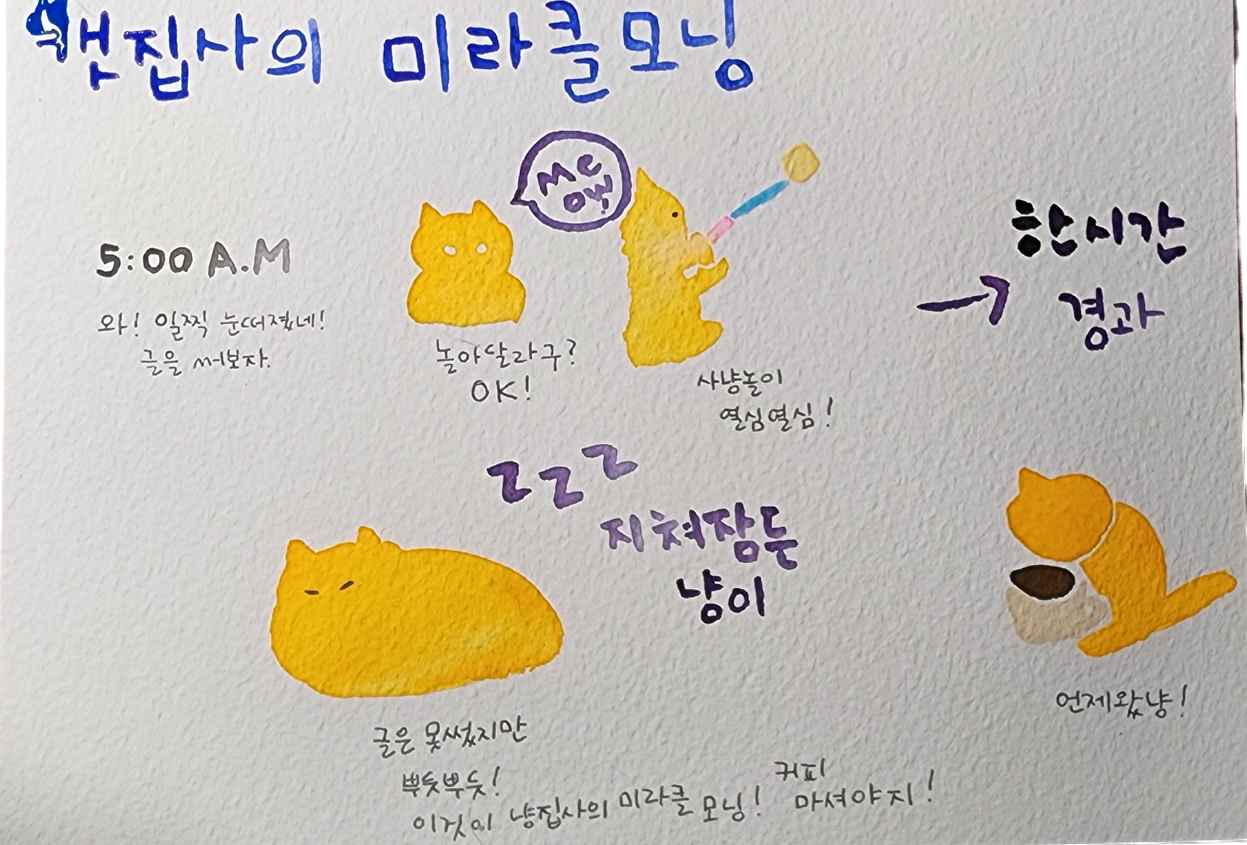 캣집사의 미라클모닝
MEOW!
5:00 A.M
와! 일찍 눈떠졌네!
글을 써보자.
놀아달라구?
OK!
사냥놀이
열심열심!
한시간
경과
zzz
지쳐잠든
냥이
언제왔냥!
글은 못썼지만
뿌듯뿌듯!
이것이 냥집사의 미라클 모닝!
커피
마셔야지!